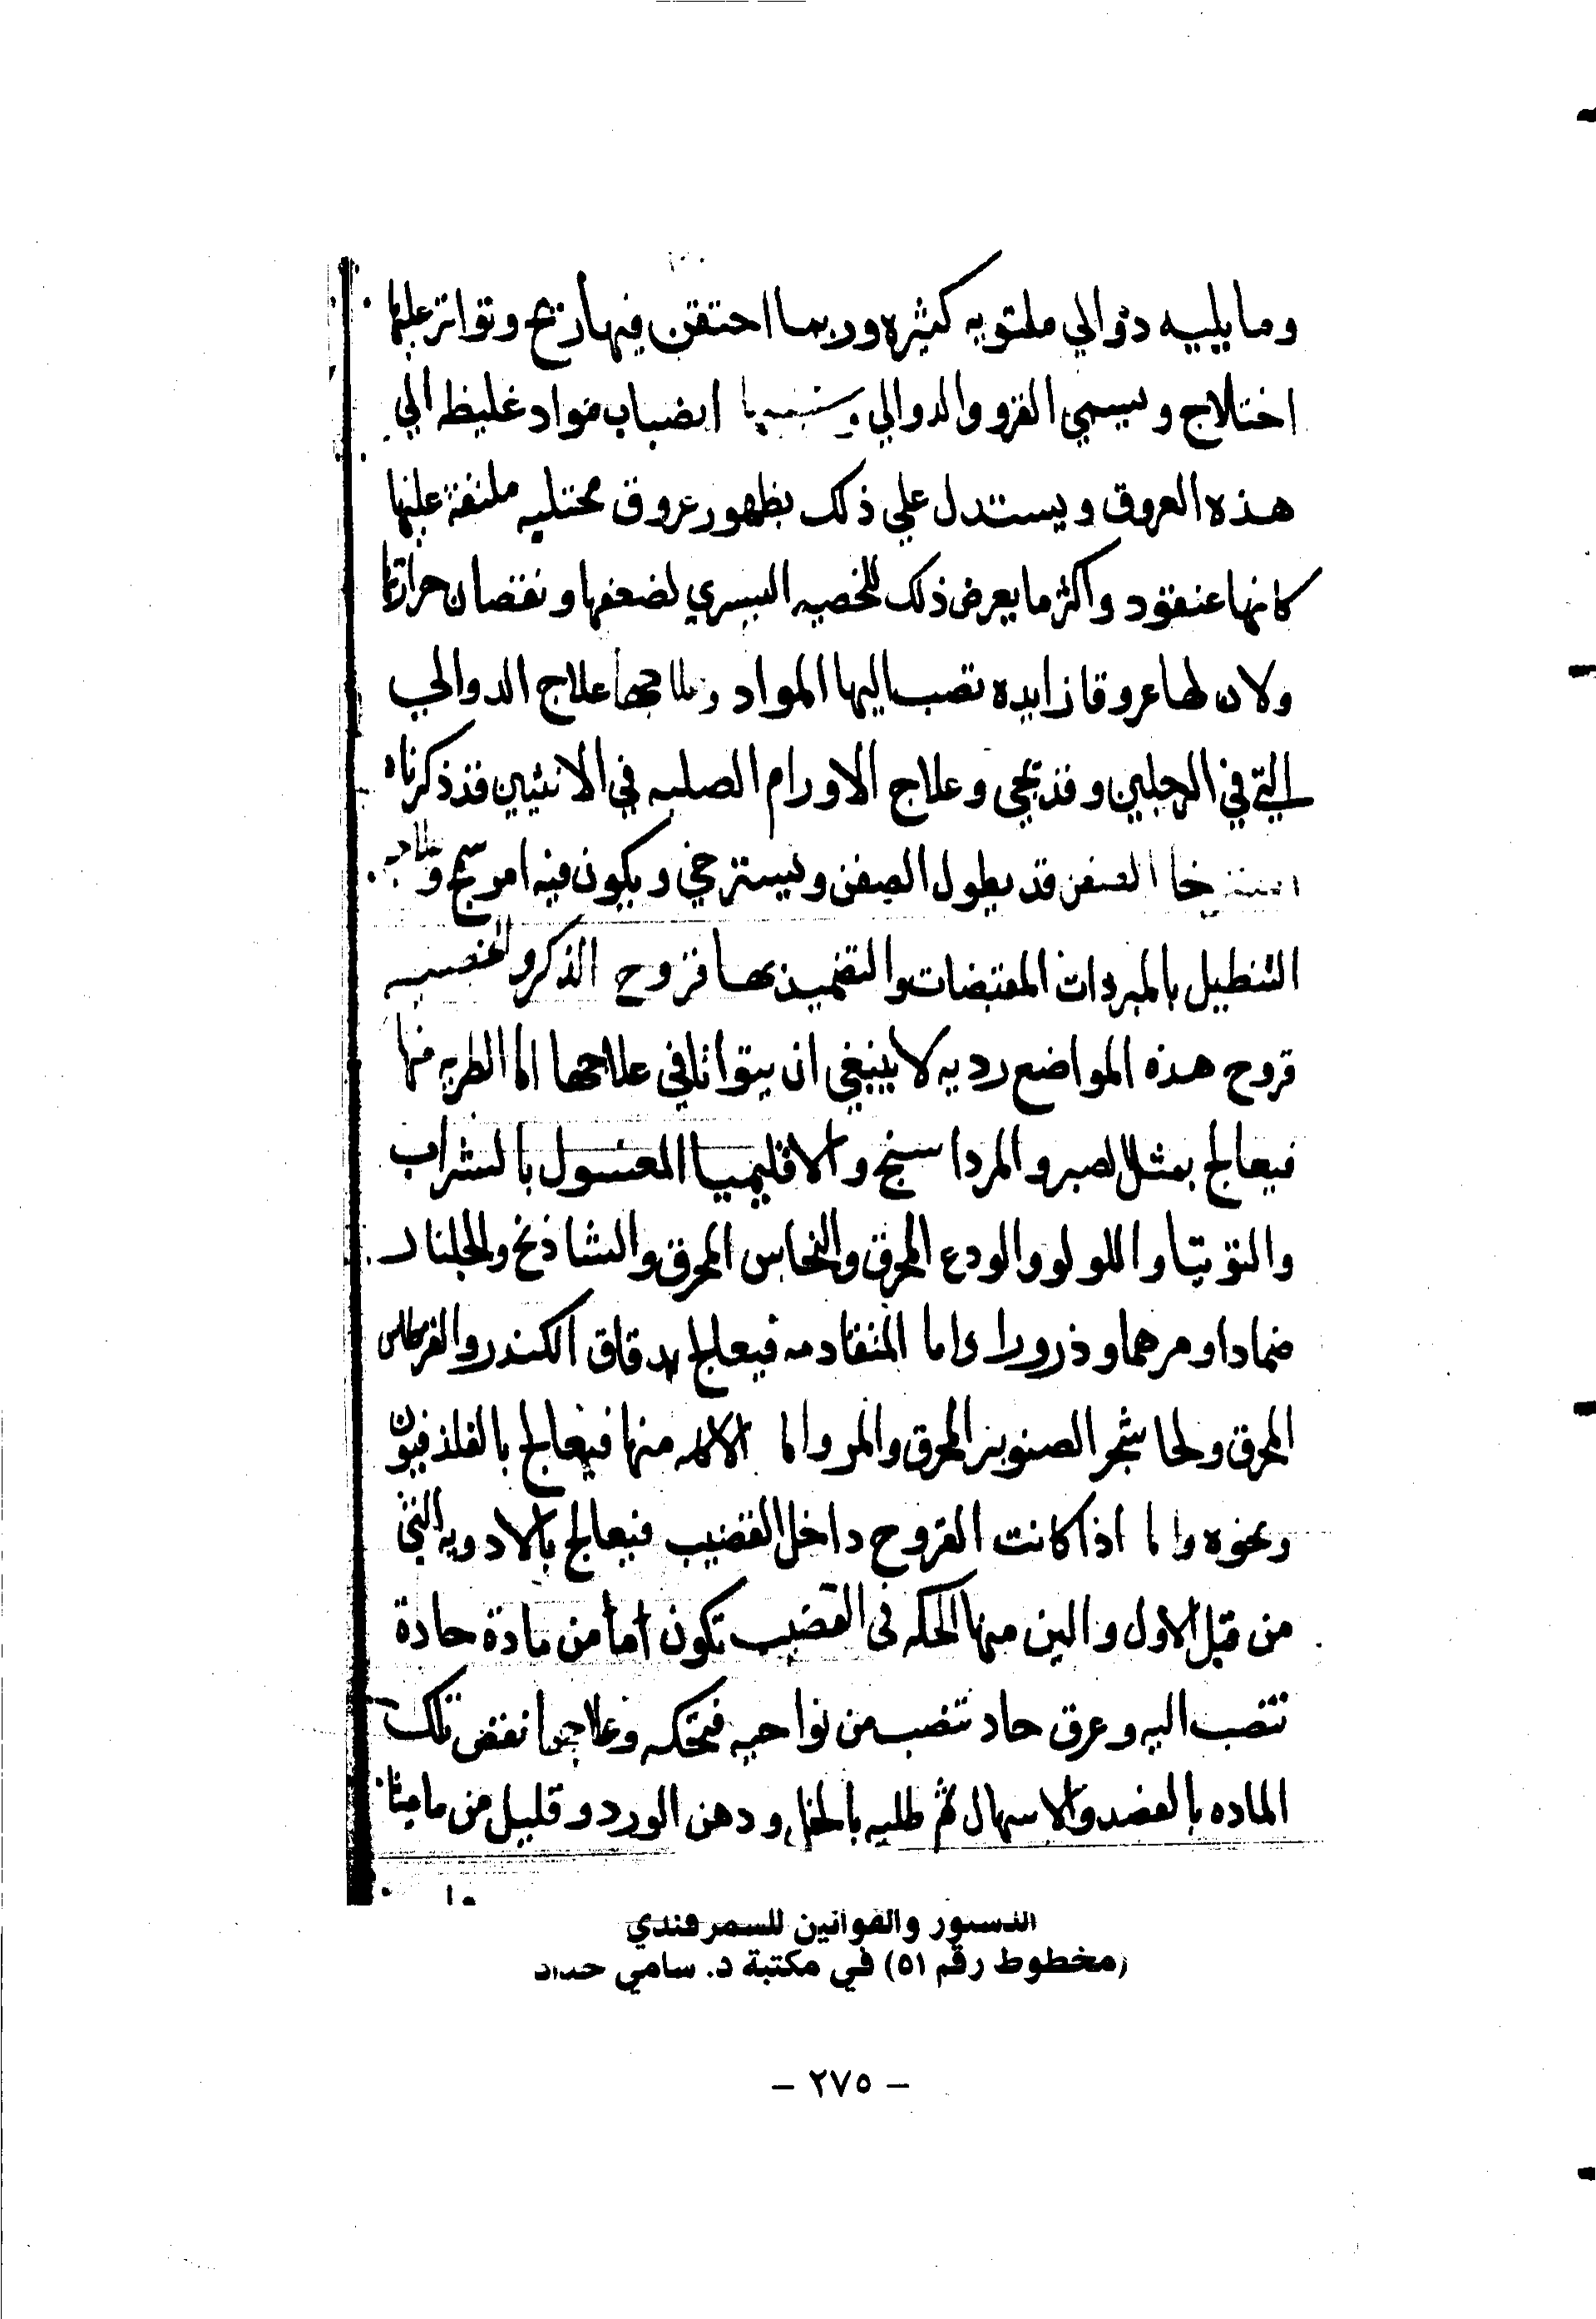 وما يليه دوالي ملتويه كثيره وربما احتقن فيها ريح وتواتر عليها
اختلاج ويسمي القرو والدوالي وسببها انصباب مواد غليظه الي
هذه العروق ويستدل علي ذلك بظهور عروق ممتليه ملتفة عليها
كانها عنقود واكثر ما يعرض ذلك للخصيه اليسري لضعفها ونقصان حرارتها
ولان لها عروقا زايده تصب اليها المواد وعلاجها علاج الدوالي
التي في الرجلين وقد يجي وعلاج الاورام الصلبه في الانثيين قد ذكرناه
استرخا الصفن قد يطول الصفن ويسترخي ويكون فيه امر سمج وعلاجه
التنطيل بالمبردات المقبضات والتضميد بها قروح الذكر والخصيه
قروح هذه المواضع رديه لا ينبغي ان يتوانا في علاجها اما الطريه منها
فيعالج بمثل الصبر والمرداسنج والاقليميا المغسول بالشراب
والتوتيا واللولو والودع المحرق والنحاس المحرق والشاذنج والجلنار
ضمادا ومرهما وذرورا واما المتقادمه فيعالج بدقاق الكندر والقرطاس
المحرق ولحا شجر الصنوبر المحرق والمر واما منها فيعالج بالفلدفيون
ونحوه واما اذا كانت القروح داخل القضيب فيعالج بالادويه التي
من قبل الاول والين منها الحكه في القضيب تكون اما من مادة حادة
تنصب اليه وعرق حاد تنصب من نواحيه فيحكه وعلاجها نفض تلك
الماده بالفصد والاسهال ثم طليه بالخل ودهن الورد وقليل من ماميثا
وا
الدستور والقوانين للسمرقندي
(مخطوط رقم ٥١) في مكتبة د. سامي حداد
– ٢٧٥ –